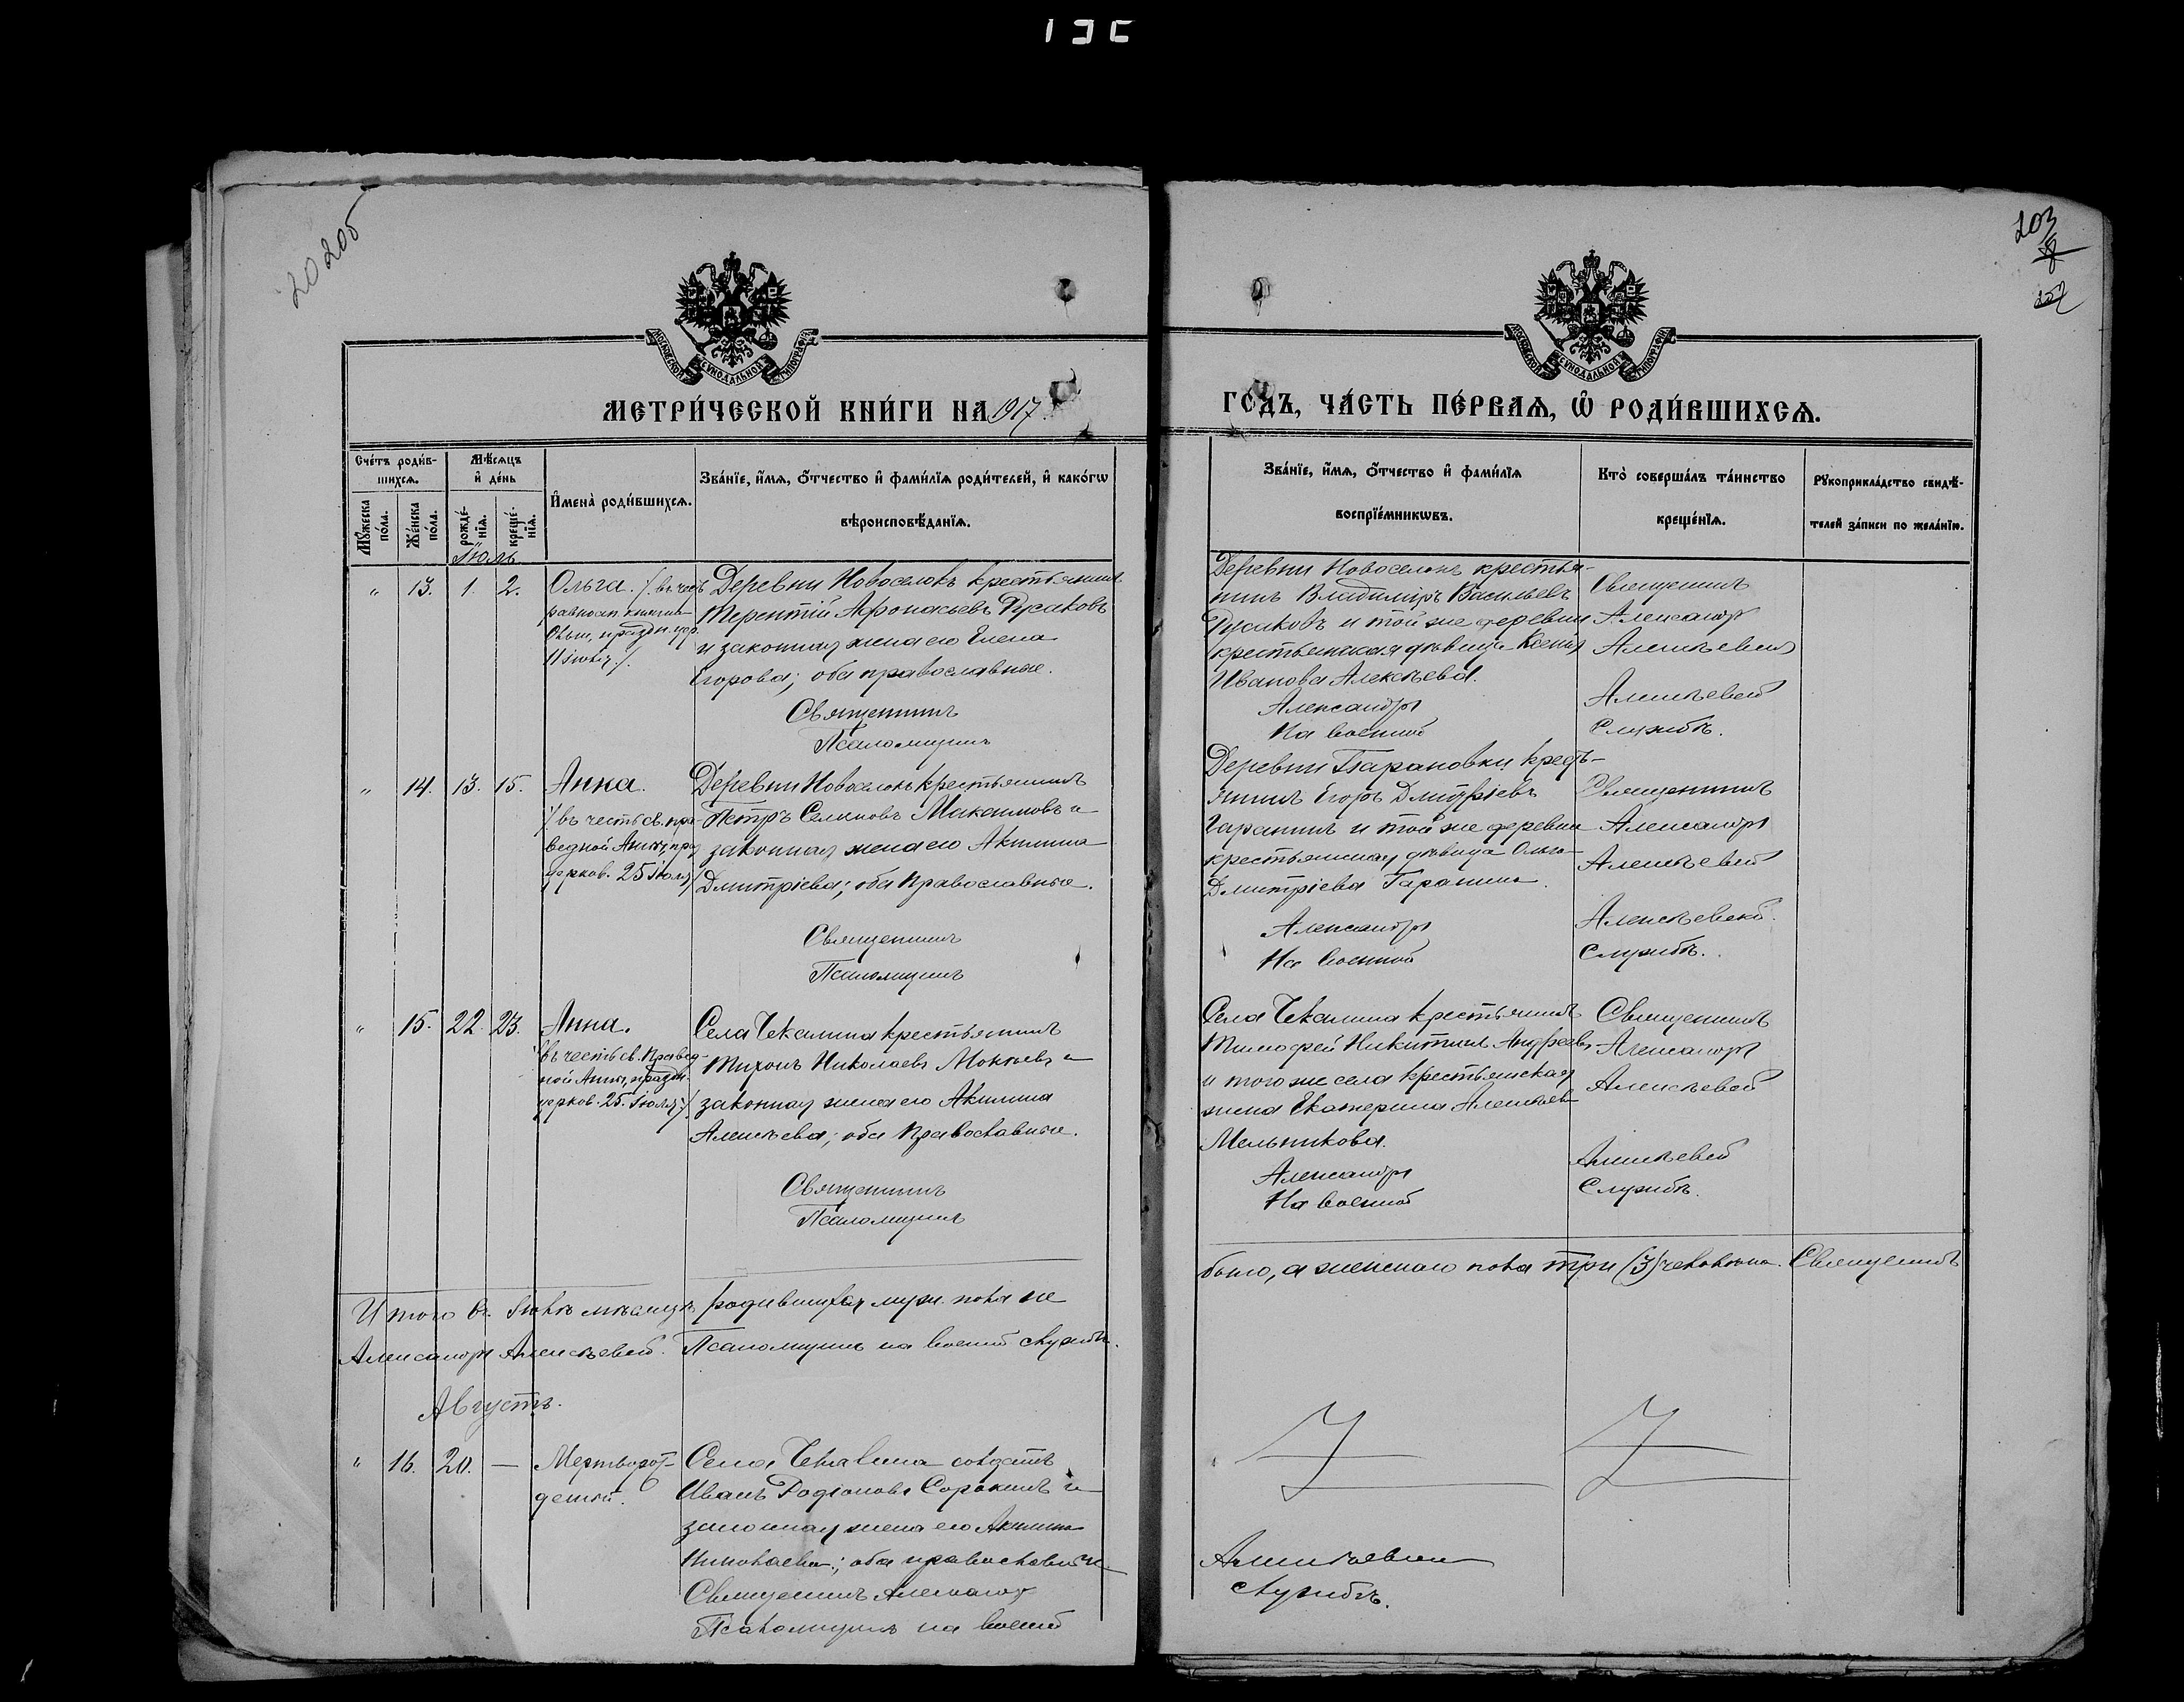 20 20об
203
МЕТРИ́ЧЕСКОЙ КНИ́ГИ НА 1917
ГО́ДЪ, ЧА́СТЬ ПЕ́РВАѦ, Ѽ РОДИ́ВШИХСѦ.
Сче́тъ роди́в-
шихсѧ.
Мѣ́сѧцъ
и҆ де́нь
Мꙋ́жеска
по́ла.
Же́нска
по́ла.
рожде́-
нїѧ.
креще́-
нїѧ.
И҆мена̀ роди́вшихсѧ.
Зва́нїе, и҆́мѧ, ѻ҆́тчество и҆ фами́лїѧ роди́телей, и҆ како́гѡ
вѣроисповѣ́данїѧ.
Зва́нїе, и҆́мѧ, ѻ҆́тчество и҆ фами́лїѧ
воспрїе́мникѡвъ.
Кто̀ соверша́лъ та́инство
креще́нїѧ.
Рꙋкоприкла́дство свидѣ́-
телей за́писи по жела́нїю.
Іюль
" 13. 1. 2.
Ольга. /въ честь
равноап. княгини
Ольги, праздн. цер.
11 іюля/.
Деревни Новоселокъ крестьянинъ
Терентій Афонасьевъ Русаковъ
и законная жена его Елена
Егорова; оба православные.
Священникъ
Псаломщикъ
Деревни Новоселокъ крестья-
нинъ Владиміръ Васильевъ
Русаковъ и той же деревни
крестьянская дѣвица Ксенія
Иванова Алексѣева.
Александръ
На военной
Священникъ
Александръ
Алексѣевскій
Алексѣевскій
службѣ.
" 14. 13. 15.
Анна.
/въ честь св. пра-
ведной Анны, пра
церков. 25 Іюля/
Деревни Новоселокъ крестьянинъ
Петръ Максимовъ и
законная жена его Акилина
Дмитріева; оба православные.
Священникъ
Псаломщикъ
Деревни Тарановки кресть-
янинъ Егоръ Дмитріевъ
Гаранинъ и той же деревни
крестьянская дѣвица Ольга
Дмитріева Гаранина.
Александръ
На военной
Священникъ
Александръ
Алексѣевскій
Алексѣевскій
службѣ.
" 15. 22. 23.
Анна.
/въ честь св. Правед-
ной Анны, праздн.
церков. 25. Іюля/.
Села Чекалина крестьянинъ
Тихонъ Николаевъ Мокѣевъ и
законная жена его Акилина
Алексѣева; оба православные.
Священникъ
Псаломщикъ
Села Чекалина крестьянинъ
Тимофей Никитинъ Андреевъ
и того же села крестьянская
жена Екатерина Алексѣева
Мельникова.
Александръ
На военной
Священникъ
Александръ
Алексѣевскій
Алексѣевскій
службѣ.
Итого въ Іюлѣ мѣсяцѣ родившихся муж. пола не
было, а женскаго пола три (3) человѣка. Священникъ
Александръ Алексѣевскій. Псаломщикъ на военной службѣ.
Августъ.
" 16. 20. —
Мертворож-
денный.
Села Чекалина солдатъ
Иванъ Родіоновъ Сорокинъ и
законная жена его Акилина
Николаева; оба православные
Священникъ Александръ
Алексѣевскій
Псаломщикъ на военной
службѣ.